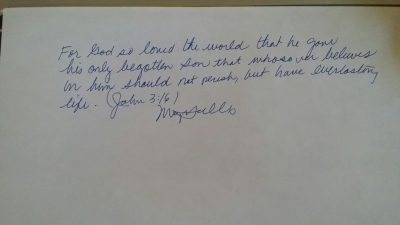 For God so loved the world that he gave
his only begotten son that whosoever believes
in him should not perish, but have everlasting
life. (John 3:16)